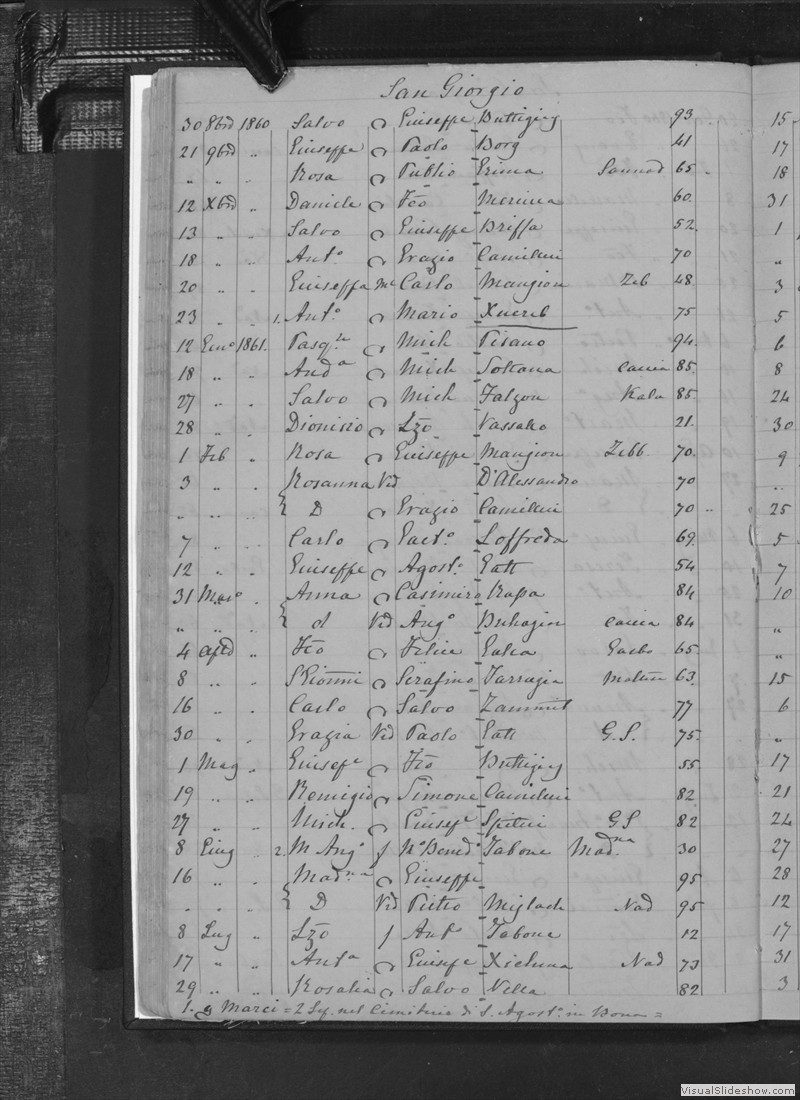 San Giorgio
30 8bre 1860 Salvo Giuseppe Buttigieg 93 15
21 9bre " Giuseppe Paolo Borg 41 17
" " " Rosa Publio Grima Sannad 65 18
12 Xbre " Daniele Fco Mercieca 60 31
13 " " Salvo Giuseppe Briffa 52 1
18 " " Anto Grazio Camilleri 70 "
20 " " Giuseppa me Carlo Mangion Zeb 48 3
23 " " 1. Anto Mario Xuereb 75 5
12 Gino 1861. Pasqle Mich Pisano 94 6
18 " " Anda Mich Soltana Caccia 85 8
27 " " Salvo Mich Falzon Kala 85 24
28 " " Dionisio Lzo Vassallo 21. 30
1 Feb " Rosa Giuseppe Mangion Zebb. 70 9
3 " " Rosanna Vid D'Alessandro 70 "
" " " D Grazio Camilleri 70 25
7 " " Carlo Gaeto Loffreda 69 5
12 " " Giuseppe Agosto Gatt 54 7
31 Maro " Anna Casimiro Rapa 84 10
" " " d Vid Ango Buhagiar Caccia 84 "
4 " Fco Felice Galea 65 "
8 " " SGionni Serafino Farrugia 63. 15
16 " " Carlo Salvo Zammit 77 6
30 " " Grazia Vid Paolo Gatt G.S. 75 "
1 Mag " Giusepe Fco Buttigieg 55 17
19 " " Remigio Simone Camilleri 82 21
27 " " Mich. Giusepe Spiteri G.S 82 24
8 Giug " 2. M Ango f No Bened Tabone Madna 30 27
16 " " Madna Giuseppe 95 28
" " " D Vid Pietro Nad 95 12
8 Lug " Lzo f Anto Tabone 12 17
17 " " Anta Giusepe Xicluna Nad 73 31
29 " " Rosalia Salvo Vella 82 3
1. Marci = 2 nel Cimiterio di S. Agosto in Bona =
VisualSlideshow.com